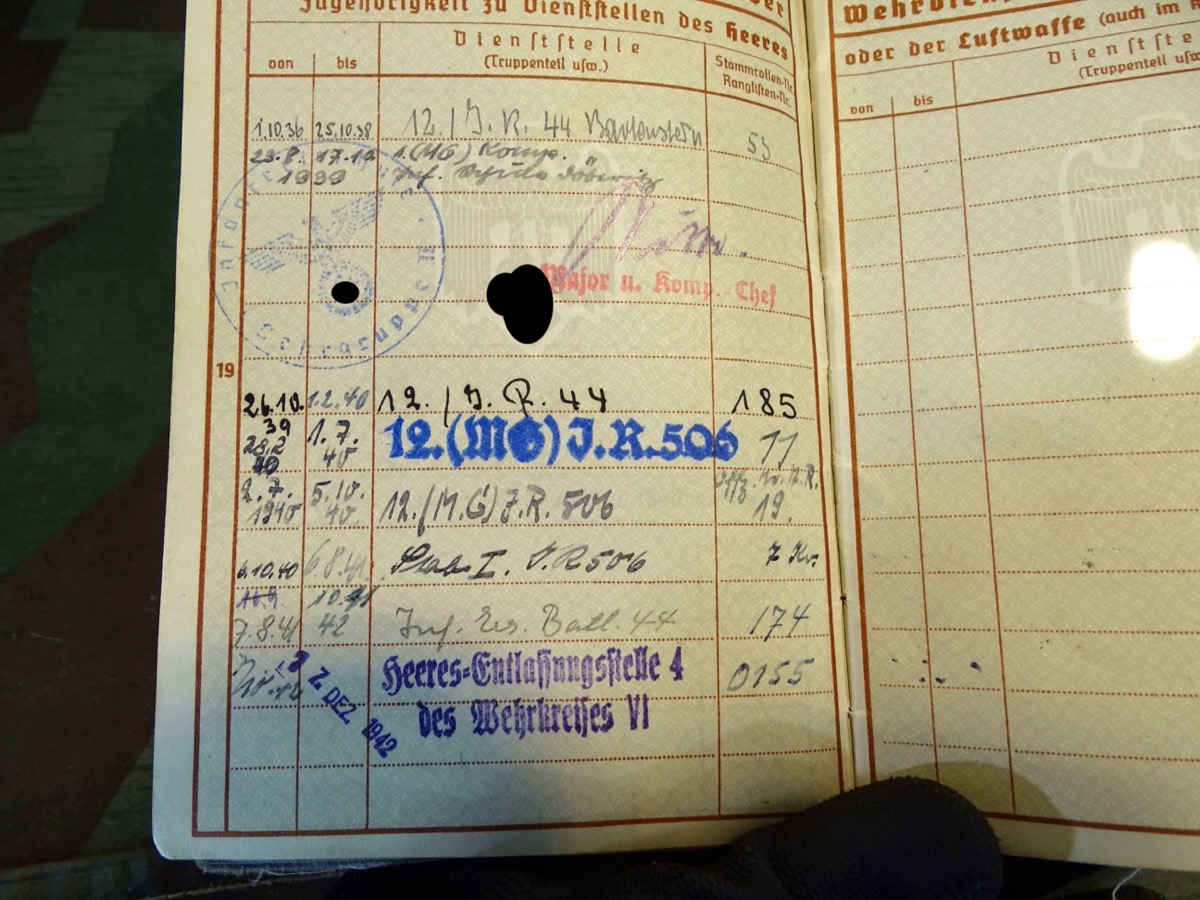 Zugehörigkeit zu Dienststellen des Heeres
von bis
Dienststelle
(Truppenteil usw.)
Stammrollen-Nr.
Ranglisten-Nr.
1.10.36 25.10.38 12./J.R. 44 Bartenstein 53
23.8. 17.10 1.(MG) Komp.
1939 Inf. Schule Döberitz
Major u. Komp.-Chef
Infanterie
Lehrgruppe
19
26.10. 1.2.40 12./J.R. 44 185
39
28.2 1.7. 12.(MG) J.R. 506 11
40 40
2.7. 5.10. 12./M.G) J.R. 506 19.
1940 40.
6.10.40 6.8.41 I. J.R 506 7
7.8.41 42 Inf. Ers. Batl. 44 174
2. DEZ. 1942
Heeres-Entlassungsstelle 4 0155
des Wehrkreises VI
oder der Luftwaffe (auch im
von bis